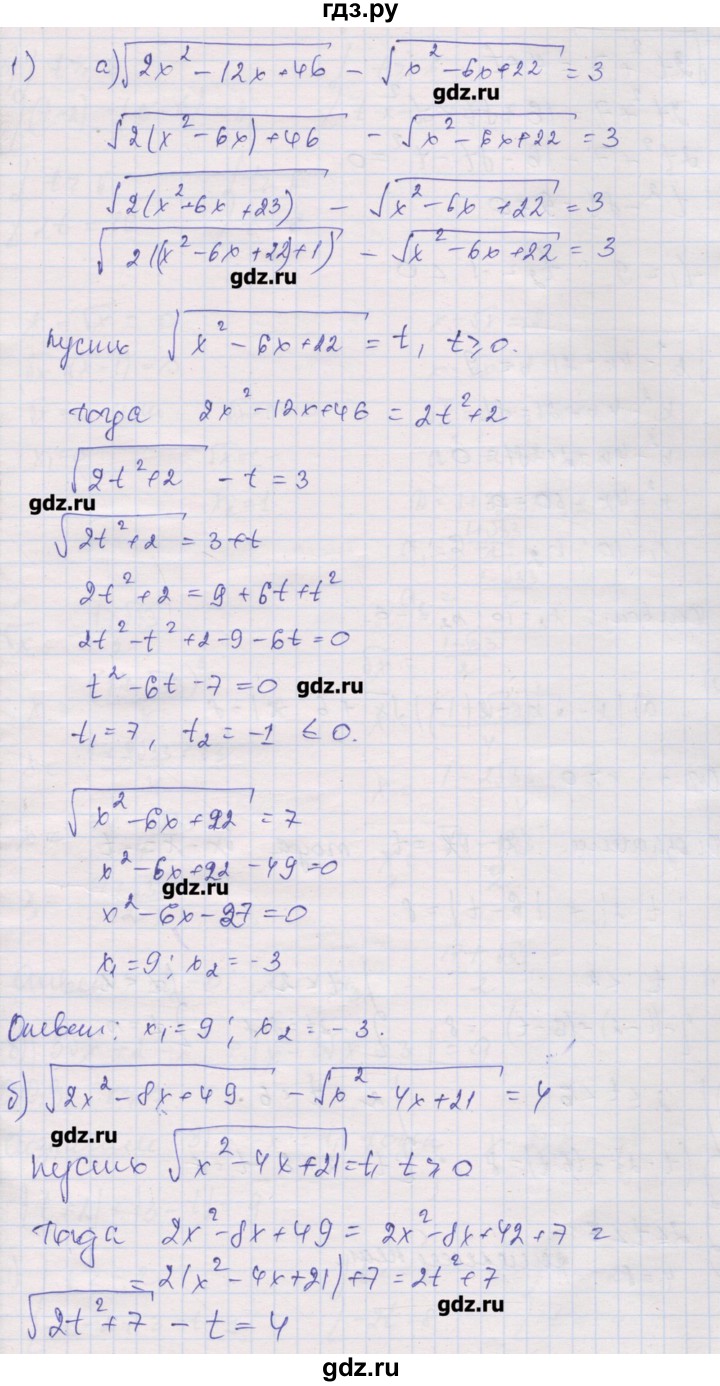 гдз.ру
1) а) √(2x² - 12x + 46) - √(x² - 6x + 22) = 3
gdz.ru
√(2(x² - 6x) + 46) - √(x² - 6x + 22) = 3
√(2(x² + 6x + 23)) - √(x² - 6x + 22) = 3
√(2((x² - 6x + 22) + 1)) - √(x² - 6x + 22) = 3
gdz.ru
пусть √(x² - 6x + 22) = t, t ≥ 0.
Тогда 2x² - 12x + 46 = 2t² + 2
√(2t² + 2) - t = 3
gdz.ru
√(2t² + 2) = 3 + t
2t² + 2 = 9 + 6t + t²
2t² - t² + 2 - 9 - 6t = 0
t² - 6t - 7 = 0 gdz.ru
t₁ = 7, t₂ = -1 ≤ 0.
√(x² - 6x + 22) = 7
x² - 6x + 22 - 49 = 0
gdz.ru
x² - 6x - 27 = 0
x₁ = 9; x₂ = -3
Ответ: x₁ = 9; x₂ = -3.
б) √(2x² - 8x + 49) - √(x² - 4x + 21) = 4
gdz.ru
пусть √(x² - 4x + 21) = t, t ≥ 0
Тогда 2x² - 8x + 49 = 2x² - 8x + 42 + 7 =
= 2(x² - 4x + 21) + 7 = 2t² + 7
gdz.ru
√(2t² + 7) - t = 4
gdz.ru